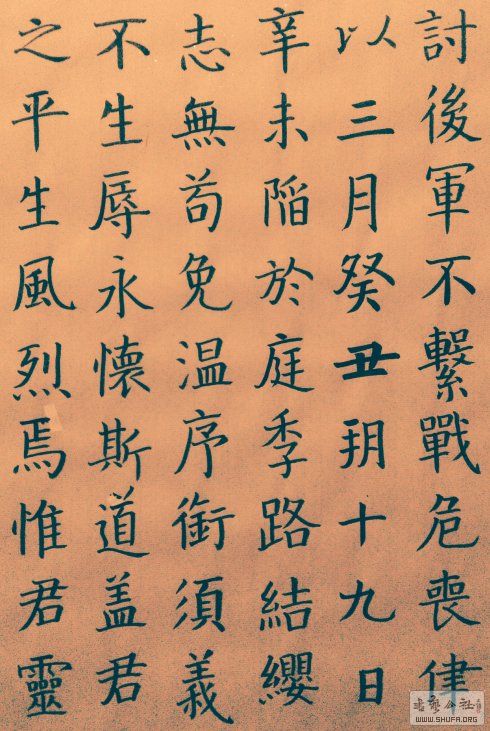 討後軍不繫戰危喪律
以三月癸丑朔十九日
辛未陷於庭季路結纓
志無苟免温序銜須義
不生辱永懷斯道盖君
之平生風烈焉惟君靈
公社
WWW.SHUFA.ORG